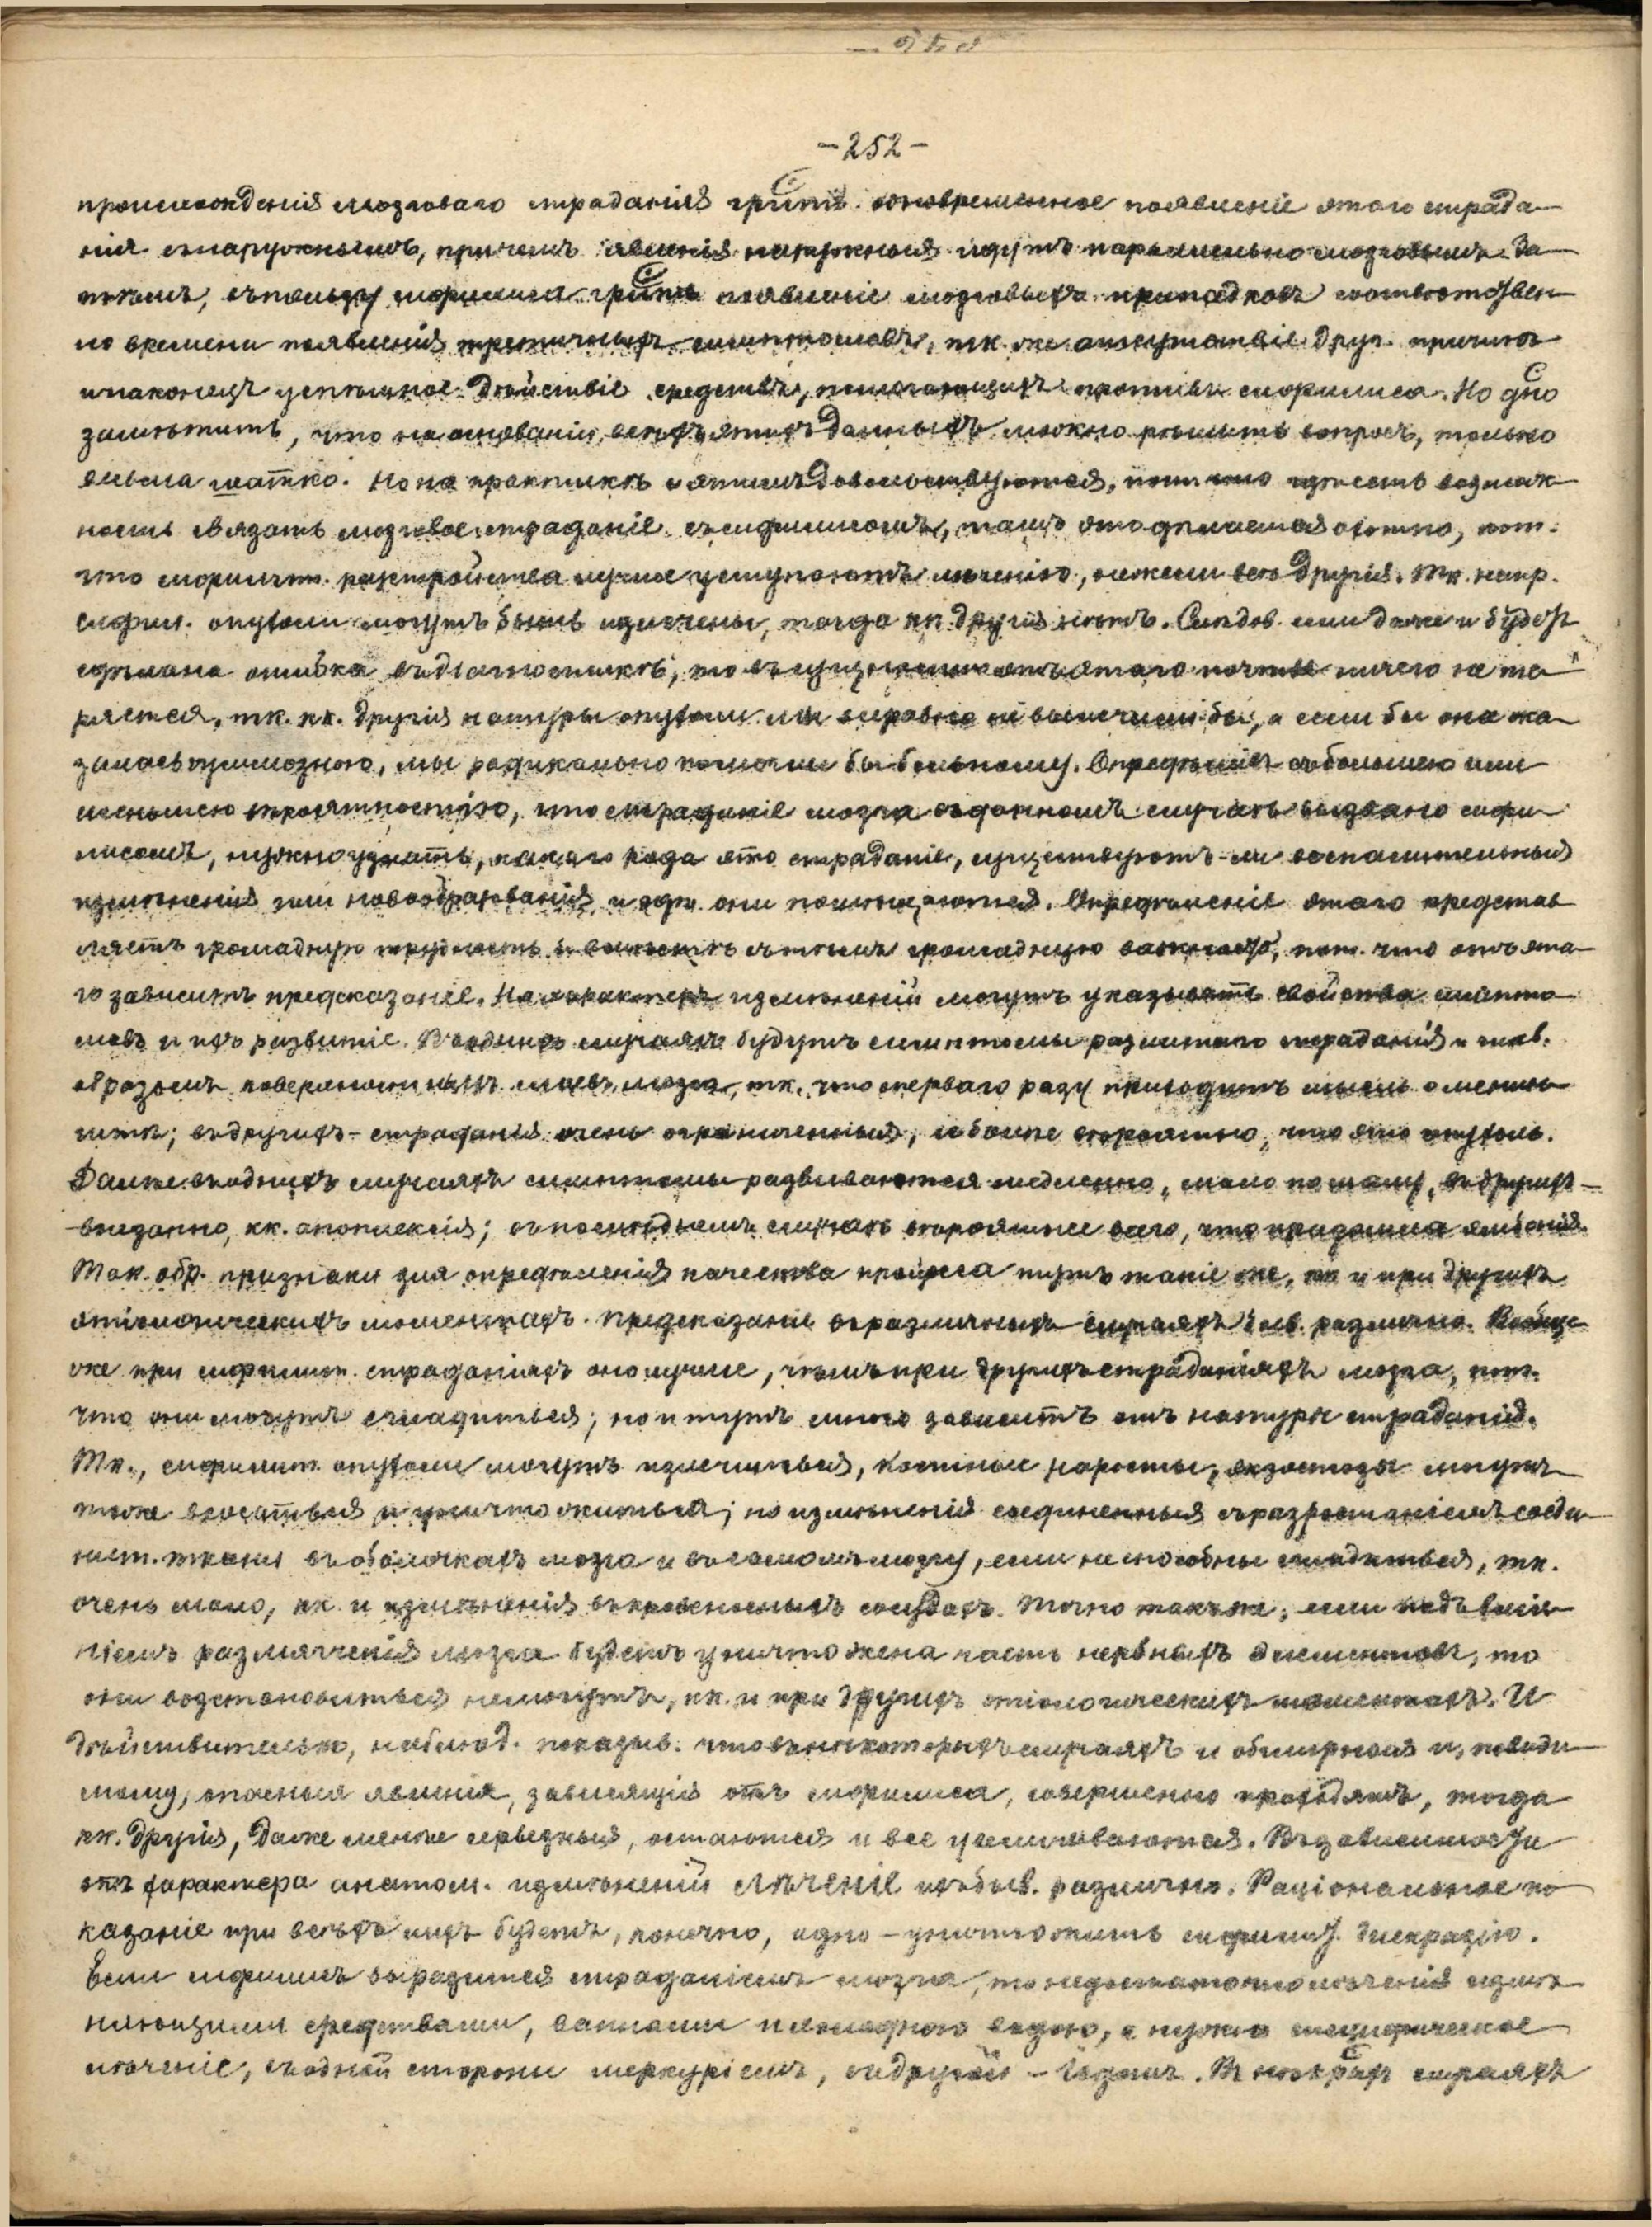 -252-
происхожденія мозговаго страданія гритъ одновременное появленіе этого страда-
нія снаружнымъ, причемъ явленія наружныя идутъ параллельно мозговымъ. За-
тѣмъ, въ пользу сифилиса гритъ появленіе мозговыхъ припадковъ соотвѣтствен-
но времени появленія третичныхъ симптомовъ, тк. же отсутствіе друг. причинъ
инаконецъ успѣшное дѣйствіе средствъ, помогающихъ противъ сифилиса. Но дно
замѣтить, что на основаніи всѣхъ этихъ данныхъ можно рѣшить вопросъ, только
весьма шатко. Но на практикѣ и этимъ довольствуются, пот. что гдѣ есть возмож-
ность связать мозговое страданіе съ сифилисомъ, тамъ это дѣлается охотно, пот.
что сифилит. разстройства лучше уступаютъ лѣченію, нежели всѣ другія. Тк. напр.
сифил. опухоли могутъ быть излечены, тогда кк другія нѣтъ. Слѣдов. если даже и будетъ
сдѣлана ошибка въ діагностикѣ, то въ сущности отъ этого почти ничего не те-
ряется, тк. кк. другія натуры опухоли мы всеравно не вылечили бы, а если бы она ока-
залась гуммозною, мы радикально помогли бы больному. Опредѣливъ съ большею или
меньшею вѣроятностію, что страданіе мозга въ данномъ случаѣ вызвано сифи-
лисомъ, нужно узнать, какого рода это страданіе, существуютъ-ли воспалительныя
измѣненія или новообразованія и гдѣ они помѣщаются. Опредѣленіе этого представ-
ляетъ громадную трудность и вмѣстѣ съ тѣмъ громадную важность, пот. что отъ эта-
го зависитъ предсказаніе. На характеръ измѣненій могутъ указывать свойства симпто-
мовъ и ихъ развитіе. Въ однихъ случаяхъ будутъ симптомы разлитаго страданія и глав.
образомъ поверхностныхъ слоевъ мозга, тк. что съ перваго разу приходитъ мысль о менин-
гитѣ; въ другихъ - страданія очень ограниченныя, и болѣе вѣроятно, что это опухоль.
Далѣе въ однихъ случаяхъ симптомы развиваются медленно, мало по малу, въ другихъ -
- внезапно, кк. апоплексія; въ послѣднемъ случаѣ вѣроятнѣе всего, что правдива эмболія.
Так. обр. признаки для опредѣленія качества процесса тутъ такіе же, кк и при другихъ
этіологическихъ моментахъ. Предсказаніе въ различныхъ случаяхъ быв. различно. Вообще
же при сифилит. страданіяхъ оно лучше, чѣмъ при другихъ страданіяхъ мозга, пот.
что они могутъ сгладиться; но и тутъ много зависитъ отъ натуры страданія.
Тк., сифилит. опухоли могутъ излечиться, костные наросты, экзостозы могутъ
тоже всосаться и уничтожиться; но измѣненія соединенныя съ разростаніемъ соеди-
нит. ткани въ оболочкахъ мозга и въ самомъ мозгу, если не способны сгладиться, тк.
очень мало, кк. и измѣненія въ кровеносныхъ сосудахъ. Точно также, если подъ влія-
ніемъ размягченія мозга будетъ уничтожена часть нервныхъ элементовъ, то
они возстановиться не могутъ, кк. и при другихъ этіологическихъ моментахъ. И
дѣйствительно, наблюд. показыв. что въ нѣкоторыхъ случаяхъ и обширныя и, повиди-
мому, опасныя явленія, зависящія отъ сифилиса, совершенно проходятъ, тогда
кк. другія, даже менѣе серьезныя, остаются и все увеличиваются. Въ зависимости
отъ характера анатом. измѣненій лѣченіе ихъ быв. различно. Раціональное по-
казаніе при всѣхъ нихъ будетъ, конечно, одно - уничтожить сифилит. дискразію.
Если сифилисъ выразился страданіемъ мозга, то недостаточно лѣченія измѣ-
няющими средствами, ваннами и холодною водою, а нужно специфическое
лѣченіе, съ одной стороны меркуріемъ, съ другой - іодомъ. Въ нѣкрыхъ случаяхъ